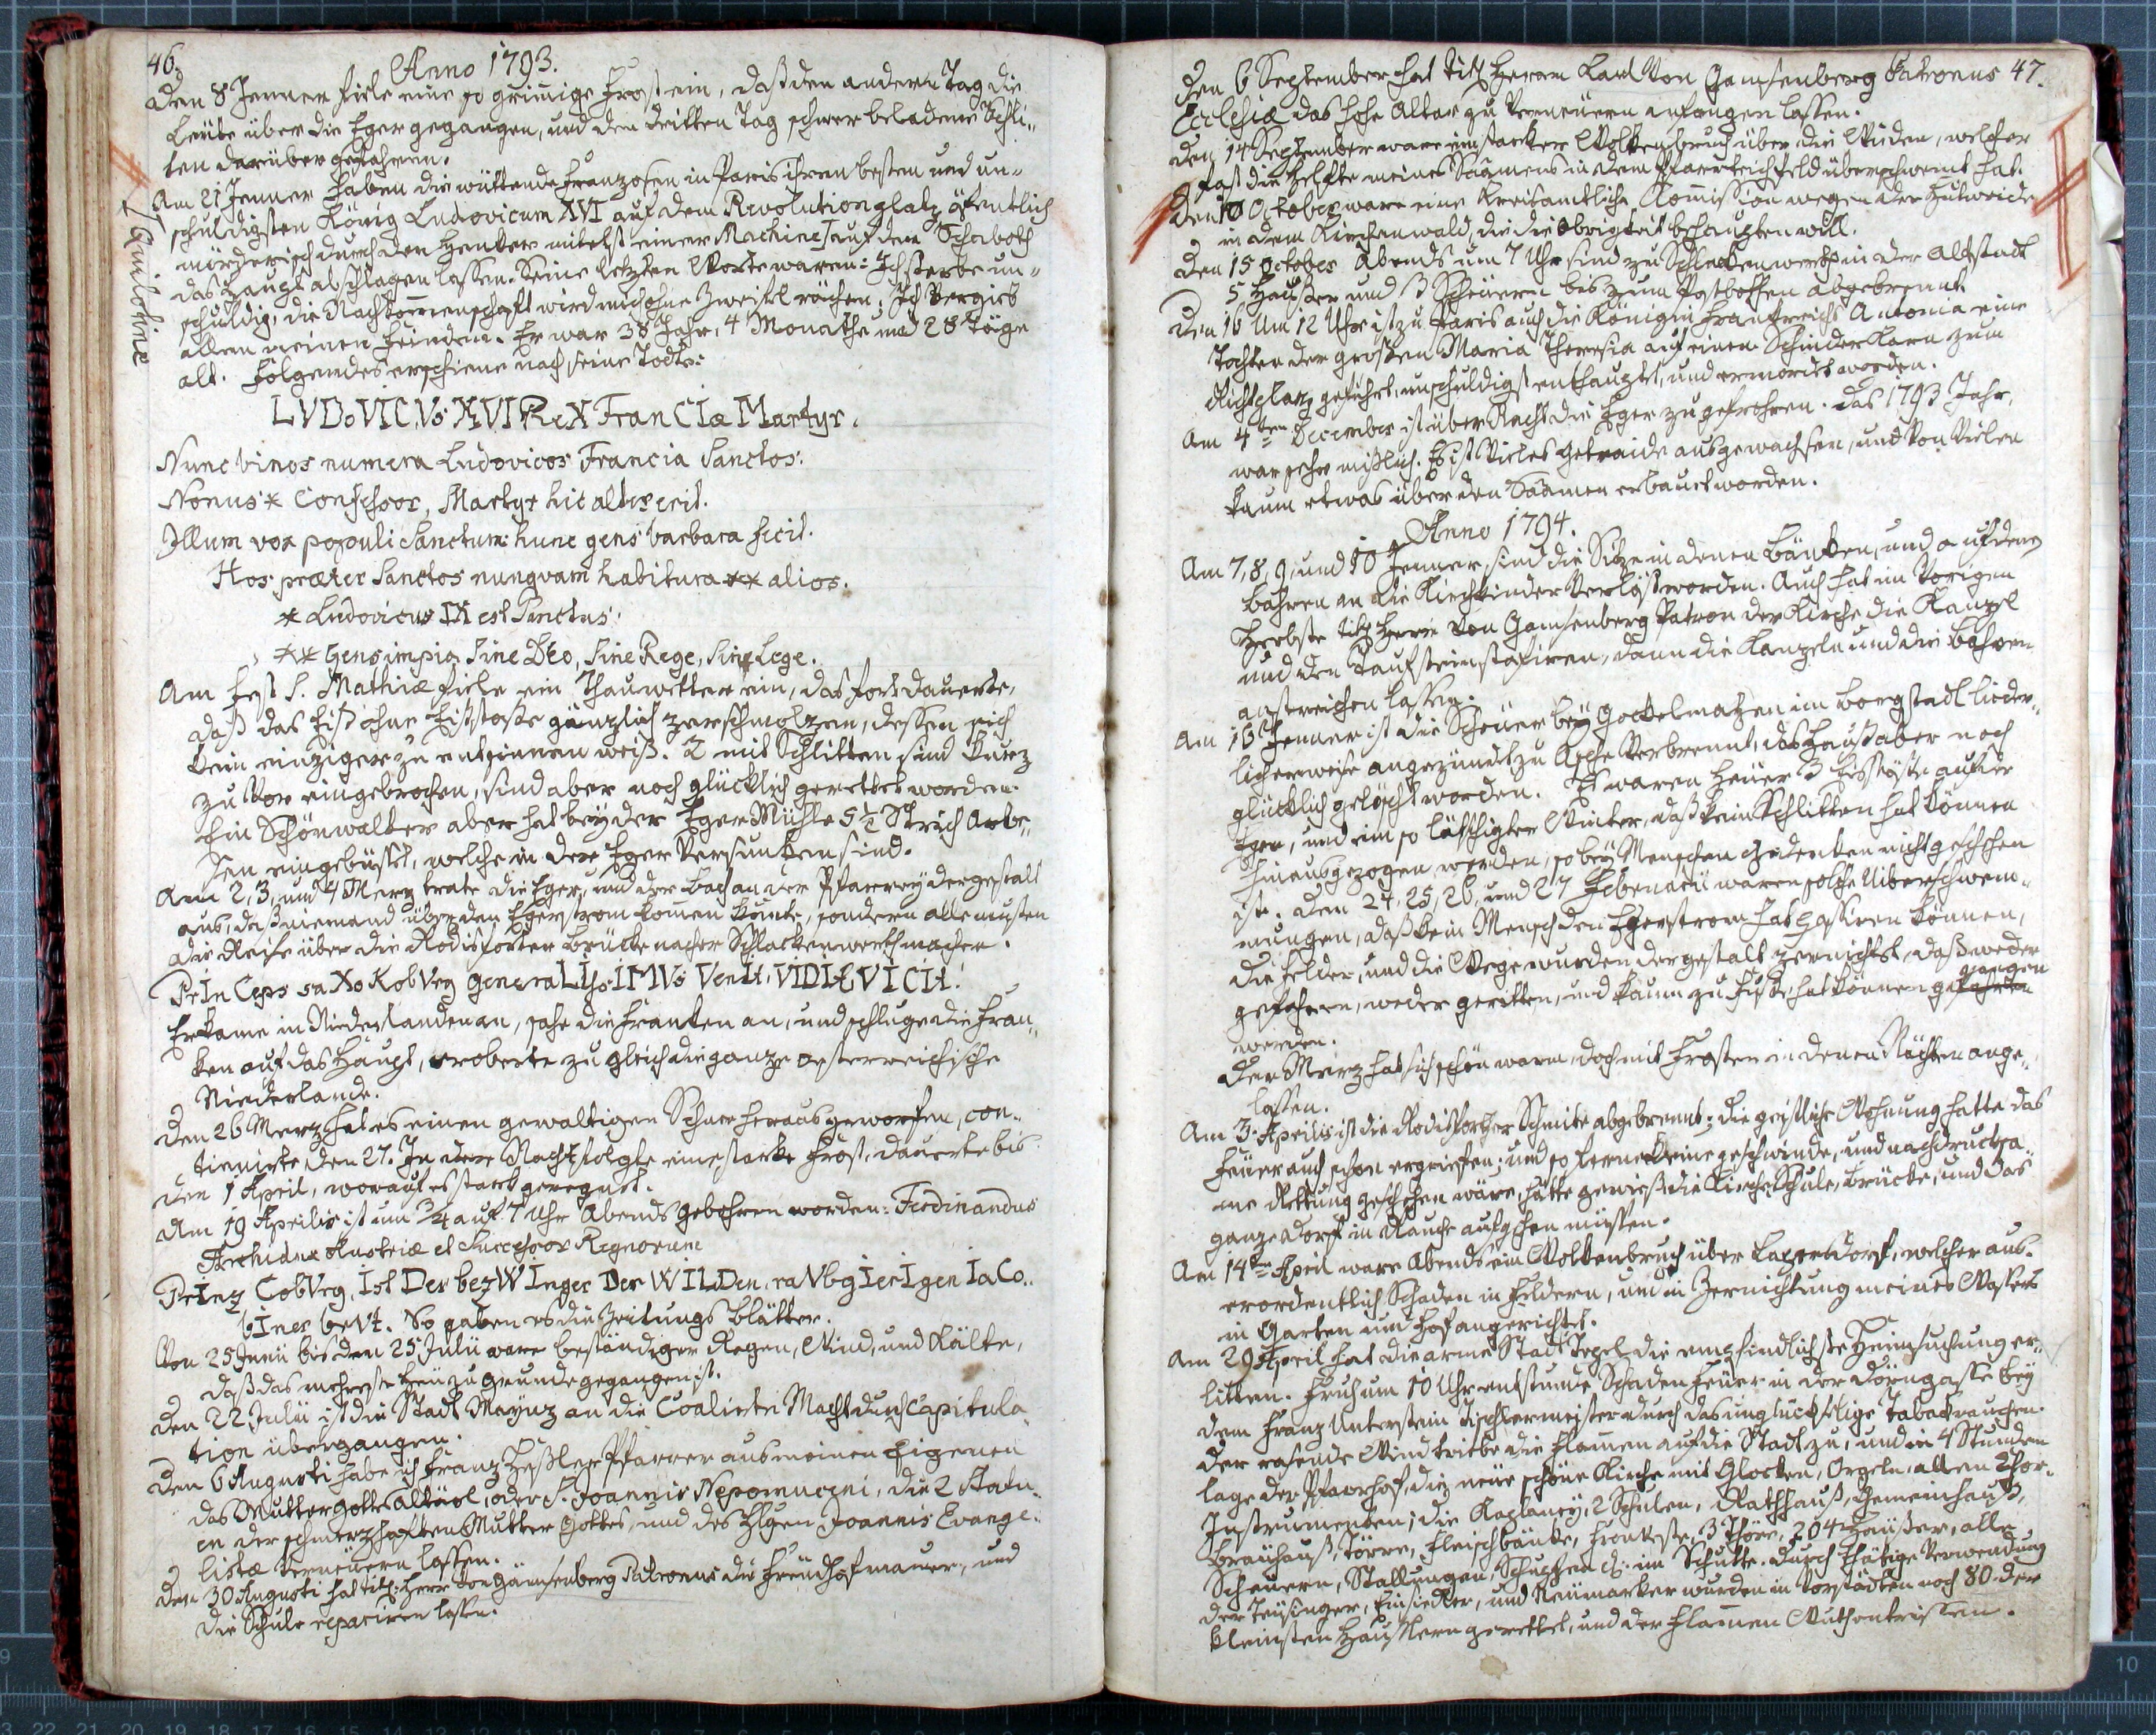 46.
Anno 1793.
Den 8 Jenner fiele eine so grimige Frost ein, daß den andern Tag die
Leüte über die Eger gegangen, und den dritten Tag schwer beladene Schli-
ten darüber gefahren.
Am 21 Jenner haben die wüttende Franzosen in Paris ihren besten und un-
schuldigsten König Ludovicum XVI auf dem Revolutionsplatz öfentlich
mörderisch durch den Henker mitelst einer Machine auf dem Schaboth
Quilotine
das Haupt abschlagen lassen. Seine letzten Worte waren: Ich sterbe un-
schuldig, die Nachkommenschaft wird mich ohne Zweifel rächen; Ich vergieb
allen meinen Feinden. Er war 38 Jahr, 4 Monathe und 28 Täge
alt. Folgendes erschiene nach seine Todte:
LVDoVICVs XVI ReX FranCIæ Martyr.
Nunc binos numera Ludovicos Francia Sanctos:
Nonus * Confessor, Martyr hic alter erit.
Illum vox populi Sanctum: hunc gens barbara fecit.
Hos præter Sanctos nunquam habitura ** alios.
* Ludovicus IX est Sanctus.
** Gens impia Sine Deo, Sine Rege, Sine Lege.
Am Fest S. Mathiæ fiele ein Thauwetter ein, das fort dauerte,
daß das Eiß ohne Eißstoße gänzlich zerschmolzen, dessen sich
kein einziger zu entsinnen weiß. 2 mit Schlitten sind kurz
zu vor eingebrochen, sind aber noch glücklich gerettet worden.
Ein Schönwalder aber hat bey der Eger Mühle 5 1/2 Strich Arbe-
sen eingebüsset, welche in der Eger versunken sind.
Am 2, 3, und 4 Merz trate die Eger, und der Bach an der Pfarrey dergestalt
aus, daß niemand über den Egerstrom komen könte, sondern alle musten
die Reise über die Rodisforter Brücke nacher Schlackenwerth machen.
PrInCeps saXo KobVrg generaLIssIMVs VenIt, VIDIt, VICIt!
Er kame in Niederlanden an, sahe die Franken an, und schluge die Fran-
ken auf das Haupt, eroberte zu gleich die ganze oesterreichische
Niederlande.
Den 26 Merz hat es einen gewaltigen Schnee heraus geworfen, con-
tinuirte den 27. In der Nacht folgte eine starke Frost, dauerte bis
den 1 April, worauf es stark geregnet.
Am 19 Aprilis ist um 3/4 auf 7 Uhr Abends gebohren worden: Ferdinandus
Archidux Austriæ et Successor Regnorum
PrInz CobVrg, Ist Der bezWInger Der WILDen, raVbgIerIgen IaCo-
bIner beVt. So gaben es die Zeitungs Blätter.
Von 25 Junii bis den 25 Julii ware beständiger Regen, Wind, und Kälte,
daß das mehreste Heü zu Grunde gegangen ist.
Den 22 Julii ist die Stadt Maynz an die Coalirte Macht durch Capitula-
tion übergangen.
Den 6 Augusti habe ich Franz Heßler Pfarrer aus meinen Eigenen
das Mutter Gottes Altärl, oder S. Joannis Nepomuceni, die 2 Statu-
en der schmerzhaften Mutter Gottes, und des Hlgen Joannis Evange-
listæ verneüern lassen.
Den 30 Augusti hat titl: Herr von Gamsenberg Patronus die Freüdhofmauer, und
die Schule repariren lassen.
47.
Den 6 September hat titl Herrn Karl von Gamsenberg Patronus
Ecclesiæ das hohe Altar zu verneüern anfangen lassen.
Den 14 September ware ein starker Wolkenbruch über die Weiden, welcher
fast die Helfte meines Saamens in dem Pfarrteichfeld überschwemt hat.
Den 10 October ware eine Kreisamtliche Comission wegen der Hutweide
in dem Kirchenwald, die die Obrigkeit behaupten will.
Den 15 October Abends um 7 Uhr sind zu Schlackenwerth in der Altstadt
5 Haüßer und 3 Scheüern bis zum Posthoffen abgebrennt.
Den 16 Um 12 Uhr ist zu Paris auch die Königin Frankreichs Antonia eine
Tochter der grosten Maria Theresia auf einen Schinderkarn zum
Richtplatz geführt, unschuldigst enthauptet, und ermordet worden.
Am 4ten December ist über Nacht die Eger zugefrohren. Das 1793 Jahr,
war sehr mißlich. Es ist vieles Getraide ausgewachsen, und von vielen
kaum etwas über den Saamen erbauet worden.
Anno 1794.
Am 7, 8, 9, und 10 Jenner sind die Sitze in denen Bänken, und auf denen
Bohren an die Kirchkinder verlößt worden. Auch hat im vorigen
Herbste titl Herr von Gamsenberg Patron der Kirche die Kanzel
und den Taufstein stafiren, dann die Kanzeln und die Bohren
anstreichen lassen.
Am 16 Jenner ist die Scheüer bey Gockelmatzen im Borgstadl lieder-
licherweise angezündet zu Asche verbrennt, das Hauß aber noch
glücklich gelöscht worden. Es waren heüer 3 Eisstöße auf der
Eger, und ein so lätschigter Winter, daß kein Schlitten hat können
hinausgezogen werden, so bey Menschen Gedenken nicht geschehen
ist. Den 24, 25, 26, und 27 Februarii waren solche Uiberschwem-
mungen, daß kein Mensch den Egerstrom hat passiren können,
die Felder, und die Wege wurden dergestalt zernichtet, daß weder
gefahren, weder geritten, und kaum zu Fuße hat können gegangen
werden.
Der Merz hat sich schön warm, doch mit Frosten in denen Nächten ange-
lassen.
Am 3. Aprilis ist die Rodisforther Schmite abgebrennt; die geistliche Wohnung hatte das
Feüer auch schon ergriefen; und so ferne keine geschwinde, und nachdrucksa-
me Rettung geschehen wäre, hätte gewieß die Kirche, Schule, Brücke, und das
ganze Dorf in Rauche aufgehen müssen.
Am 14ten April ware Abends ein Wolkenbruch über Lapersdorf, welcher aus-
erordentlich Schaden in Feldern, und in Zernichtung meines Wassers
in Garten und Hof angerichtet.
Am 29 April hat die arme Stadt Tepel die empfindlichste Heimsuchung er-
litten. Früh um 10 Uhr entstunde Schaden Feüer in der Dörngasse bey
dem Franz Unterstein Tischlermeister durch das unglückselige Taback rauchen.
Der rasende Wind triebe die Flamen auf die Stadt zu, und in 4 Stunden
lage der Pfarrhof, die neüe schöne Kirche mit Glocken, Orgeln, allen Chor-
Instrumenten; die Kaplaney, 2 Schulen, Rathhauß, Gemeinhauß,
Bräuhauß, Dörre, Fleischbänke, Frohnfeste, 3 Thöre, 204 Haüßer, alle
Scheuern, Stallungen, Schupfen &: im Schutte. Durch thätige Verwendung
der Teüsinger, Einsiedler, und Neümarker wurden in Vorstädten noch 80 der
kleinsten Haüßlern gerettet, und der Flamen Wuth entrissen.